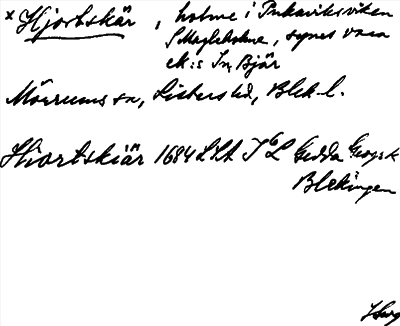 x Hjortskär, holme i Pukaviksviken
S Magleholme, synes vara
ek:s In, Bjär
Mörrums sn, Listers hd, Blek. l.
Hiortskiär 1684 LSA Gedda Geogr
Blekingen